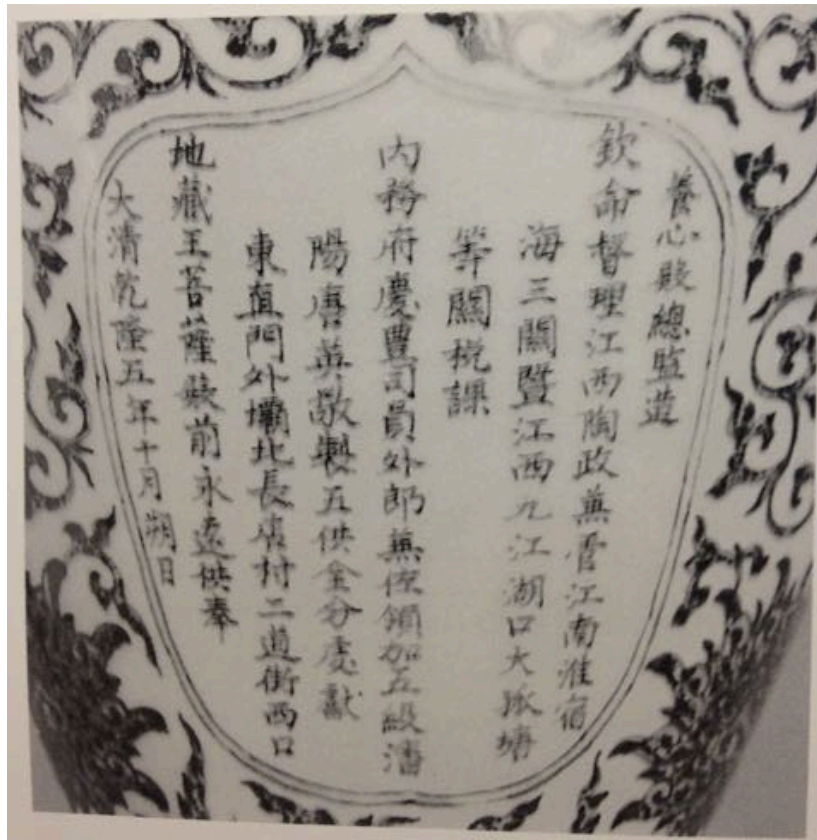 養心殿總監造
欽命督理江西陶政兼管江南淮宿
海三關暨江西九江湖口大孤塘
等關税課
內務府慶豊司員外郎兼佐領加五級瀋
陽唐英敬製五供全分虔獻
東直門外壩北長店村二道街西口
地藏王菩薩殿前永遠供奉
大清乾隆五年十月朔日